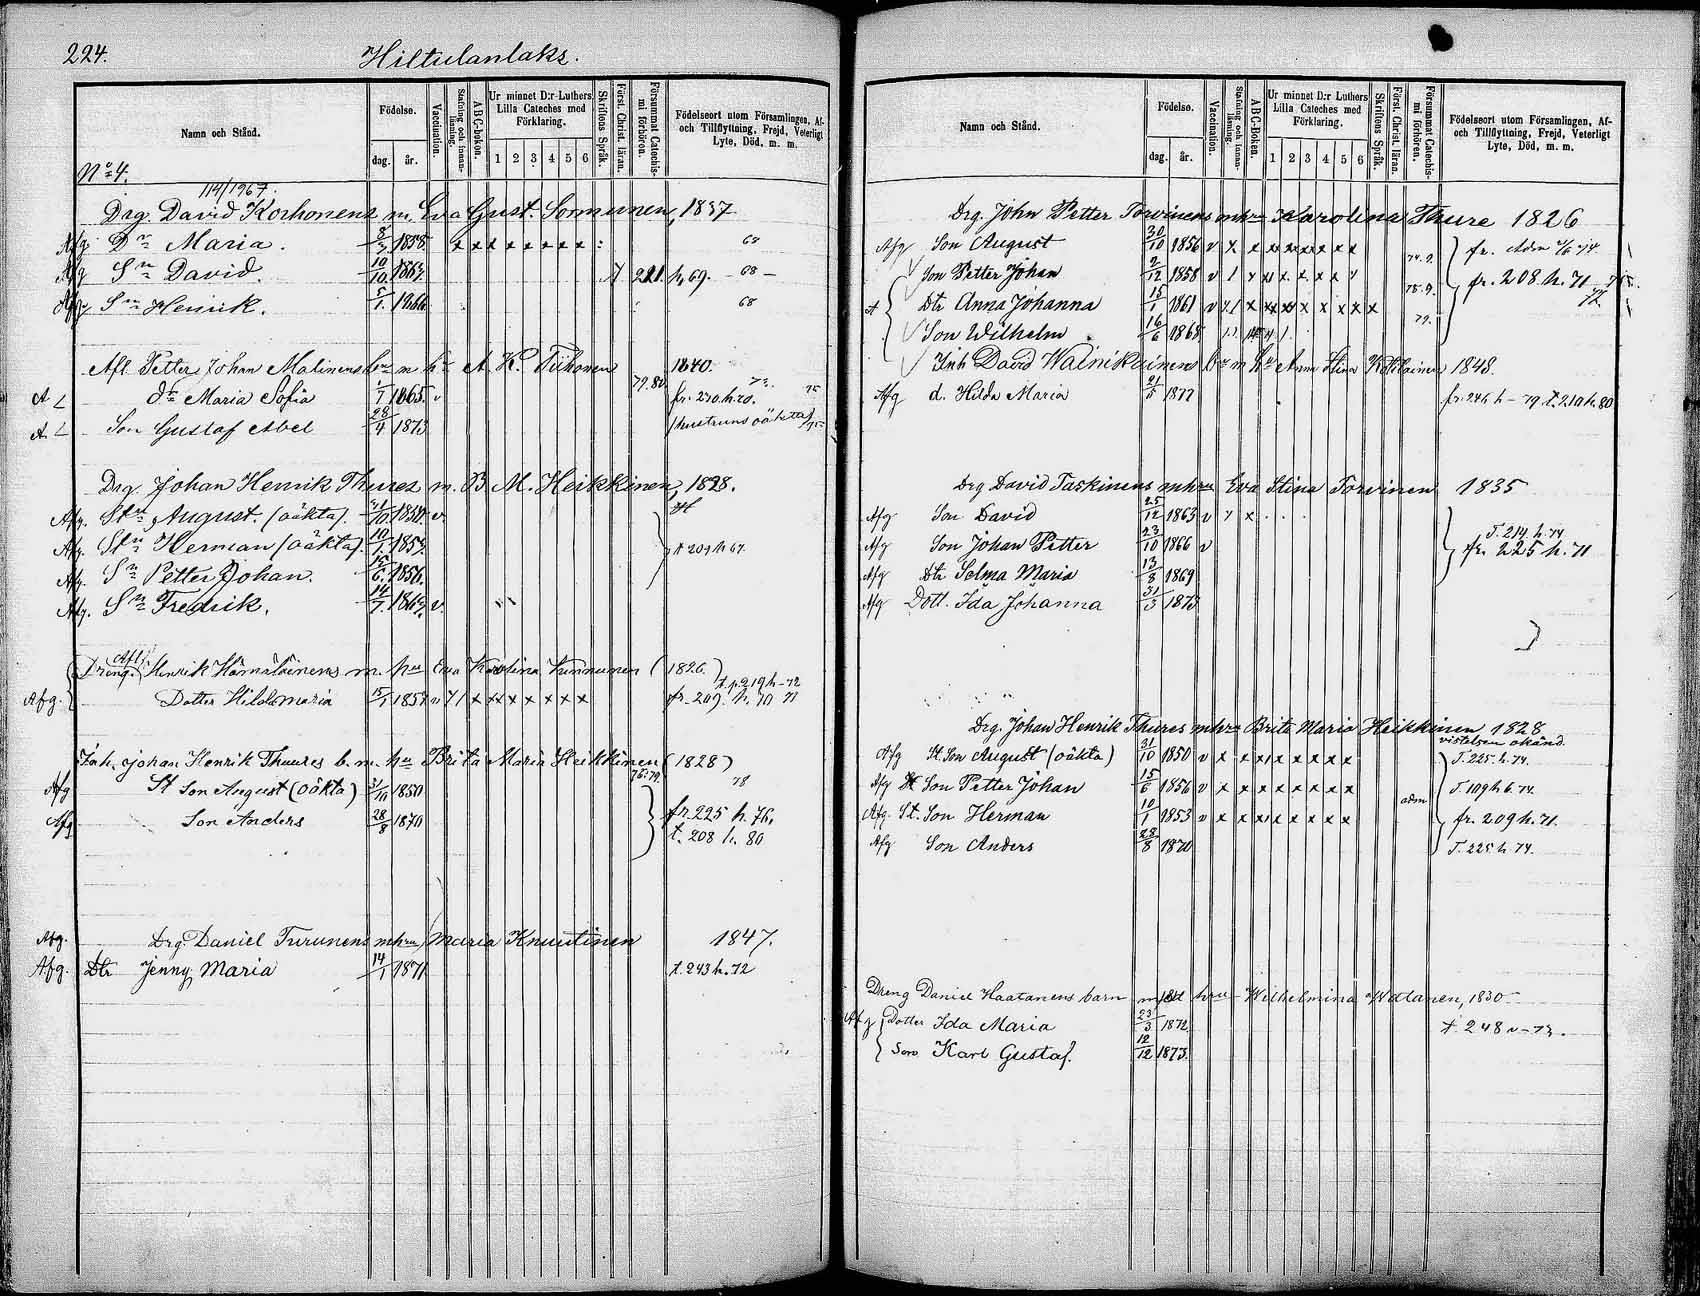 224.
Hiltulanlaks.
Namn och Stånd.
Födelse.
dag.
år.
Vaccination.
Stafning och Innanläsning.
ABC-bokon.
Ur minnet D:r Luthers Lilla Cateches med Förklaring.
1 2 3 4 5 6
Skriftens Språk.
Först. Christ. läran.
Försummat Catechismi förhören.
Födelseort utom Församlingen, Af- och Tillflyttning, Frejd, Veterligt Lyte, Död, m. m.
No 4.
114/1967.
Drg. David Korhonens m. Eva Gust. Sormunen, 1837
Afg. Dr Maria. 8/3 1858. x x x x x x x x : 68
Afg Sn David. 10/10 1863 221. h. 69. 68 —
Afg Sn Henrik. 5/1. 1866 68
Afl. Petter Johan Malinens bn m. hu A. K. Tiihonen 1840.
A dr Maria Sofia 1/7 1865. v 79.80 fr. 270. h. 70. 75
A. Son Gustaf Abel 28/4 1873 (hustruns oäkta) 75
Drg. Johan Henrik Thures m. B. M. Heikkinen, 1828.
Afg. St n August. (oäkta). 31/10 1850. v
Afg. St n Herman (oäkta). 10/1. 1853. t 209 h 67.
Afg. Sn Petter Johan. 15/6. 1856.
Afg. Sn Fredrik. 14/7. 1865. v.
Afl.
Dreng. Henrik Hämäläinens m. hu Eva Karolina Kinnunen (1826.)
t. p. 219 h-72
Afg. Dotter Hilda Maria 15/1 1857 v x x x x x x x fr. 209. h. 70 71
Inh. Johan Henrik Thuures b. m. hu Brita Maria Heikkinen (1828)
Afg St Son August (oäkta) 31/10 1850 76.79. 78
Afg Son Anders 28/8 1870 fr. 225 h. 76.
t. 208 h. 80
Afg. Drg. Daniel Turunens mhru Maria Knuutinen 1847.
Afg. Dtr Jenny Maria 14/1 1871 t. 243 h. 72
Namn och Stånd.
Födelse.
dag.
år.
Vaccination.
Stafning och Innanläsning.
ABC-Boken.
Ur minnet D:r Luthers Lilla Cateches med Förklaring.
1 2 3 4 5 6
Skriftens Språk.
Först. Christ. läran.
Försummat Catechismi förhören.
Födelseort utom Församlingen, Af- och Tillflyttning, Frejd, Veterligt Lyte, Död, m. m.
Drg. John Petter Torvinens mhru Karolina Thure 1826
Afg Son August 30/10 1856 v x x x x x x x x 74.9.
Son Petter Johan 2/12 1858 v 1 x x x x x x 75.9. fr. 208 h. 71 75.
A Dtr Anna Johanna 15/1 1861 v x x x x x x x x 72.
Son Wilhelm 16/6 1868 79.
Inh David Wainikainens bn m hu Anna Stina Kettilainen 1848.
Afg d. Hilda Maria 21/5 1877 fr. 246 h – 79 t. 210 h. 80
Drg David Taskinens mhru Eva Stina Torvinen 1835
Afg Son David 25/12 1863 v x
T. 214. h. 74
Afg Son Johan Petter 23/10 1866 v fr. 225 h. 71
Afg Dtr Selma Maria 13/8 1869
Afg Dott. Ida Johanna 31/3 1873
Drg. Johan Henrik Thures mhru Brita Maria Heikkinen 1828
vistelsen okänd.
Afg St. Son August (oäkta) 31/10 1850 v x x x x x x x x T. 225. h. 74.
Afg St Son Petter Johan 15/6 1856 v x x x x x x x x T. 109 h 6. 74.
adm
Afg. St. Son Herman 10/1 1853 v x x x x x x x x fr. 209 h. 71.
Afg Son Anders 28/8 1870 T. 225. h. 74.
Dreng Daniel Haatanens barn med hru Wilhelmina Watanen, 1830
Afg Dotter Ida Maria 23/3 1872 t 248 – 73.
Son Karl Gustaf. 12/12 1873.